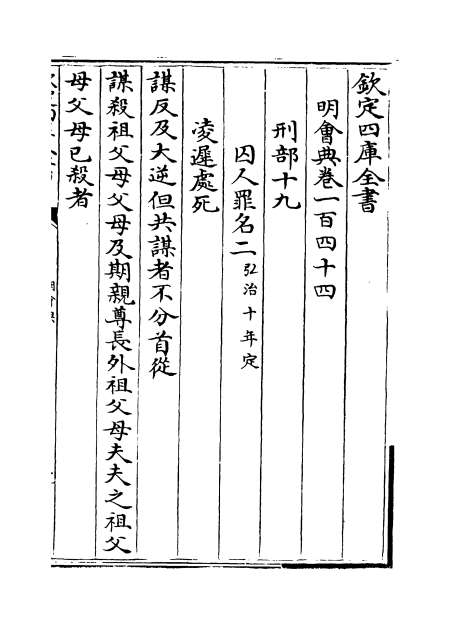 欽定四庫全書
明會典卷一百四十四
刑部十九
囚人罪名二弘治十年定
凌遲處死
謀反及大逆但共謀者不分首從
謀殺祖父母父母及期親尊長外祖父母夫夫之祖父
母父母已殺者